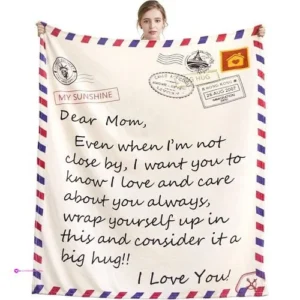 HUG
28 AUG 2007
MY SUNSHINE
Dear Mom,
Even when I'm not
close by, I want you to
know I love and care
about you always,
wrap yourself up in
this and consider it a
big hug!!
I Love You!